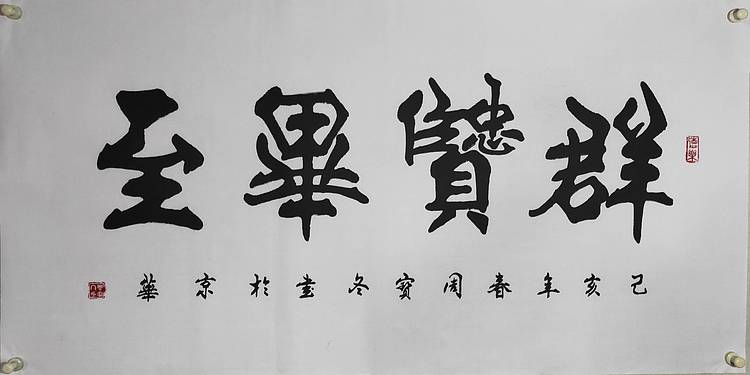 群贒畢至
己亥年春周寶冬書於京華